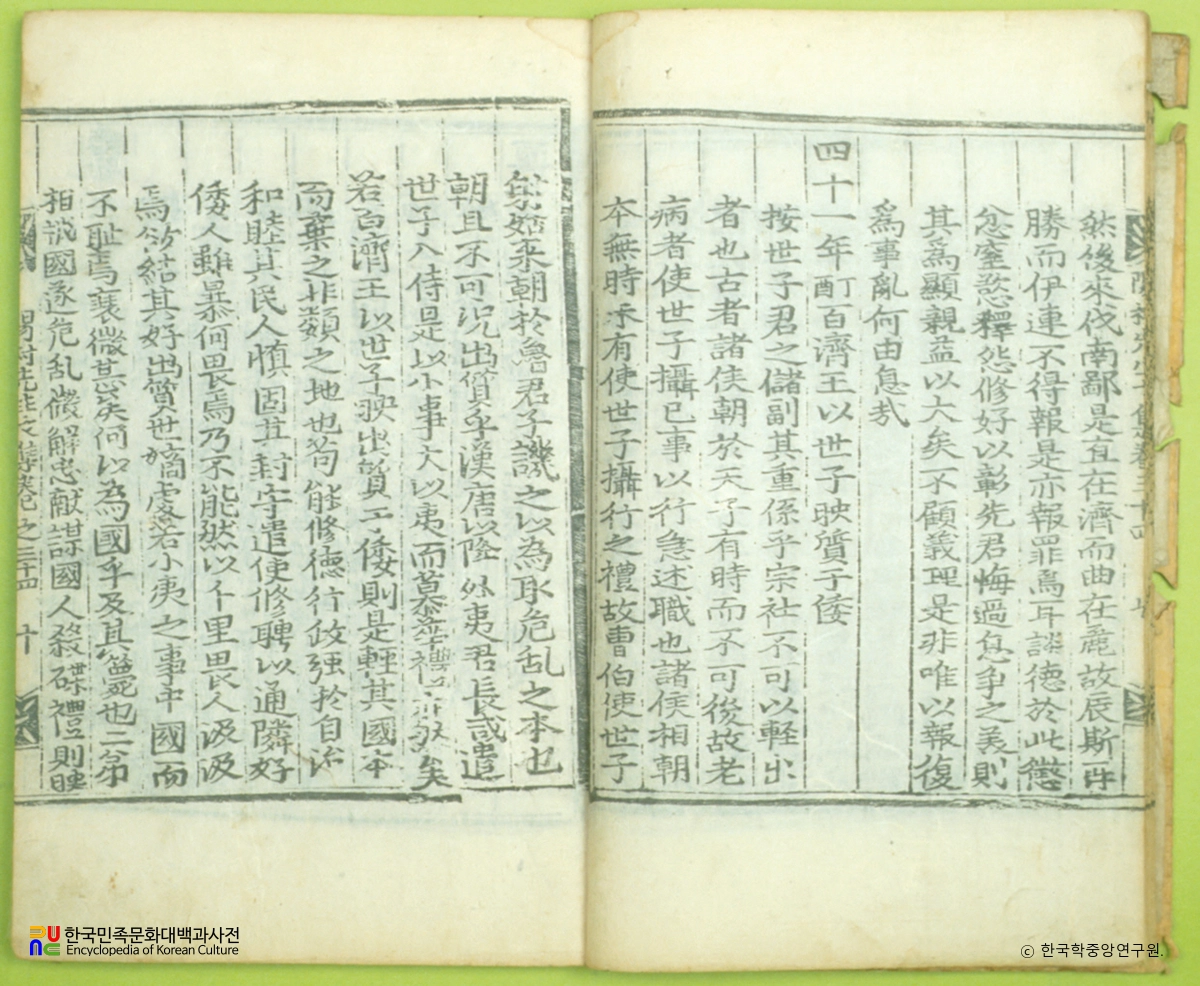 然後來伐南鄙是直在濟而曲在麗故辰斯一
勝而伊連不得報是亦報罪焉耳談德於此懲
忿窒慾釋怨修好以彰先君悔過息爭之美則
其爲顯親益以大矣不顧義理是非唯以報復
爲事亂何由息哉
四十一年酊百濟王以世子映質于倭
按世子君之儲副其重係乎宗社不可以輕出
者也古者諸侯朝於天子有時而不可後故老
病者使世子攝已事以行急述職也諸侯相朝
本無時未有使世子攝行之禮故曹伯使世子
射姑來朝於魯君子譏之以為取危乱之本也
朝且不可況出質乎漢唐以降外夷君長或遣
世子入侍是以小事大以夷而慕華禮矣
若百濟王以世子映出質于倭則是輕其國本
而棄之非類之地也苟能修德行政强於自治
和睦其民人慎固其封守遣使修聘以通隣好
倭人雖暴何畏焉乃不能然以千里畏人汲汲
焉欲結其好出質世嫡處若小夷之事中國而
不耻焉衰微甚矣何以為國乎及其薨也二弟
相戕國遂危乱微解忠献謀國人殺碟禮則
之二十四 十
한국민족문화대백과사전
Encyclopedia of Korean Culture
ⓒ 한국학중앙연구원.